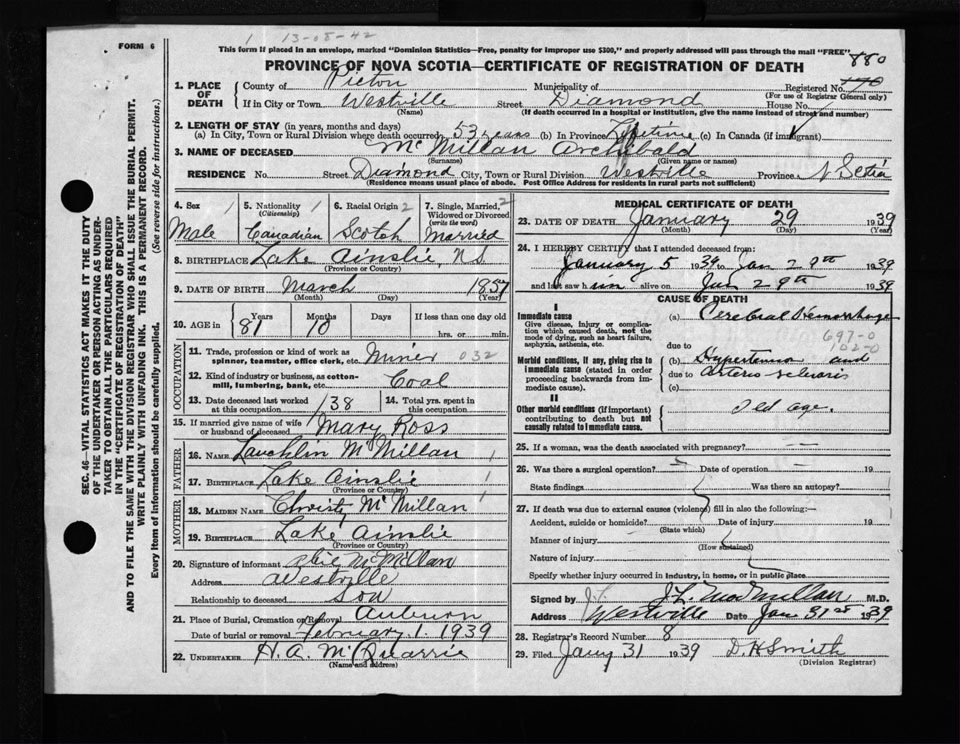 1 13-08-42
FORM 6
This form if placed in an envelope, marked "Dominion Statistics—Free, penalty for improper use $300," and properly addressed will pass through the mail "FREE"
PROVINCE OF NOVA SCOTIA—CERTIFICATE OF REGISTRATION OF DEATH
880
1. PLACE OF DEATH
County of Pictou Municipality of Registered No. 170
(For use of Registrar General only)
If in City or Town Westville Street Diamond House No.
(Name) (If death occurred in a hospital or institution, give its name instead of street and number)
2. LENGTH OF STAY (in years, months and days)
(a) In City, Town or Rural Division where death occurred 53 years (b) In Province Lifetime (c) In Canada (if immigrant)
3. NAME OF DECEASED McMillan Archibald
(Surname) (Given name or names)
RESIDENCE No. Street Diamond City, Town or Rural Division Westville Province N Scotia
(Residence means usual place of abode. Post Office Address for residents in rural parts not sufficient)
4. Sex 1
Male
5. Nationality 1
(Citizenship)
Canadian
6. Racial Origin 2
Scotch
7. Single, Married, 2
Widowed or Divorced
(write the word)
Married
8. BIRTHPLACE Lake Ainslie, N.S
(Province or Country)
9. DATE OF BIRTH March 1857
(Month) (Day) (Year)
10. AGE in Years Months Days If less than one day old
81 10 hrs. or min.
OCCUPATION
11. Trade, profession or kind of work as
spinner, teamster, office clerk, etc. Miner 032
12. Kind of industry or business, as cotton-
mill, lumbering, bank, etc. Coal
13. Date deceased last worked
at this occupation 138
14. Total yrs. spent in
this occupation
15. If married give name of wife
or husband of deceased Mary Ross
FATHER
16. NAME Lauchlin McMillan 1
17. BIRTHPLACE Lake Ainslie 1
(Province or Country)
MOTHER
18. MAIDEN NAME Christy McMillan 1
19. BIRTHPLACE Lake Ainslie
(Province or Country)
20. Signature of informant McMillan
Address Westville
Relationship to deceased Son
21. Place of Burial, Cremation or Removal Auburn
Date of burial or removal February 1. 1939
22. UNDERTAKER H. A. McQuarrie
(Name and address)
MEDICAL CERTIFICATE OF DEATH
23. DATE OF DEATH January 29 1939
(Month) (Day) (Year)
24. I HEREBY CERTIFY that I attended deceased from:
January 5 1939 to Jan 29th 1939
and last saw him alive on Jan 29th 1939
CAUSE OF DEATH
I
Immediate cause
Give disease, injury or complica-
tion which caused death, not the
mode of dying, such as heart failure,
asphyxia, asthenia, etc.
(a) Cerebral Hemorrhage
due to
Morbid conditions, if any, giving rise to
immediate cause (stated in order
proceeding backwards from im-
mediate cause).
(b) Hypertension and
due to arterio sclerosis
(c)
II
Other morbid conditions (if important)
contributing to death but not
causally related to immediate cause.
Old age.
25. If a woman, was the death associated with pregnancy? —
26. Was there a surgical operation? Date of operation 19
State findings Was there an autopsy?
27. If death was due to external causes (violence) fill in also the following:—
Accident, suicide or homicide? Date of injury 19
(State which)
Manner of injury
(How sustained)
Nature of injury
Specify whether injury occurred in industry, in home, or in public place
Signed by J. L. MacMillan M.D.
Address Westville Date Jan 31st 1939
28. Registrar's Record Number 8
29. Filed Jany 31 1939 D. H Smith
(Division Registrar)
SEC. 46—VITAL STATISTICS ACT MAKES IT THE DUTY
OF THE UNDERTAKER OR PERSON ACTING AS UNDER-
TAKER TO OBTAIN ALL THE PARTICULARS REQUIRED
IN THE "CERTIFICATE OF REGISTRATION OF DEATH"
AND TO FILE THE SAME WITH THE DIVISION REGISTRAR WHO SHALL ISSUE THE BURIAL PERMIT.
WRITE PLAINLY WITH UNFADING INK. THIS IS A PERMANENT RECORD.
Every item of information should be carefully supplied. (See reverse side for instructions.)